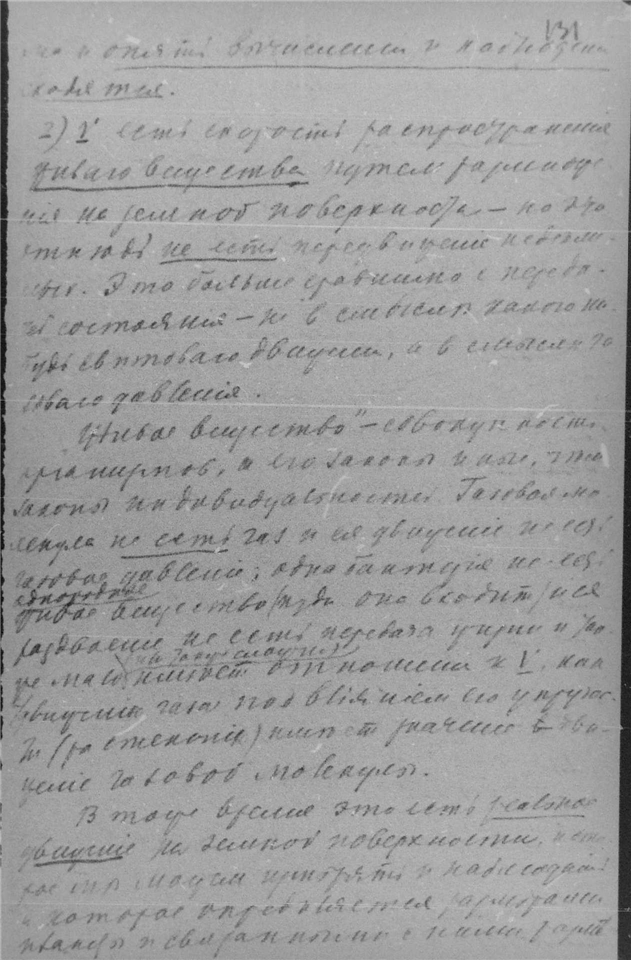 131
и опять вычисления и наблюдения
сходятся.
2) V есть скорость распространения
живаго вещества путем размноже
нія на земной поверхности – но это
отнюдь не есть передвиженіе
Это больше сравнимо с переда
чей состоянія – не в смысле какого ни
будь светового движения, а в смысле га
зоваго давленія.
"Живое вещество" – совокупность
организмов, и его законы иные, чем
законы индивидуальностей. Газовая мо
лекула не есть газ и ея движеніе не есть
газовое давленіе; одна бактерія не есть
однородное
живое вещество (куда она входит) и ея
раздвоение не есть передача
имеет отношения к V, как
движеніе газа под вліяніем его упругос
ти (растеканія) имеет значеніе дви
женіе газовой молекулы.
В то же время это есть реальное
движеніе на земной поверхности, кото
рое мы можем и наблюдать
и которое определяется размерами
планеты и связанными с ними